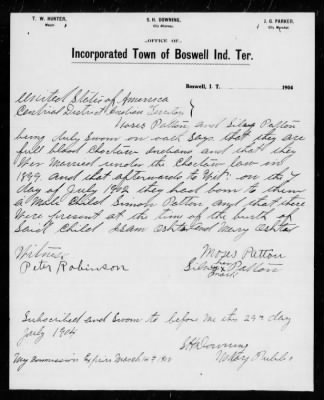 T. W. HUNTER,
Mayor
S. H. DOWNING,
City Attorney
J. G. PARKER,
City Marshal
OFFICE OF
Incorporated Town of Boswell Ind. Ter.
Boswell, I. T. 1904
United States of America
Central District Indian Territory
Moses Patton and Silway Patton
being duly Sworn on oath Says that they are
full blood Choctaw Indians and that they
Wer Married under the Choctaw law in
1899 and that afterwards to Wit: on the 7
day of July 1902 they had born to them
a Male Child Simon Patton, and that there
Were present at the time of the birth of
Said Child and Mary
Witness Moses Patton
Peter Robinson
her
Silway x Patton
mark
Subscribed and Sworn to before Me this 29th day
July 1904
S H Downing
My Commission Expires March Notary Public